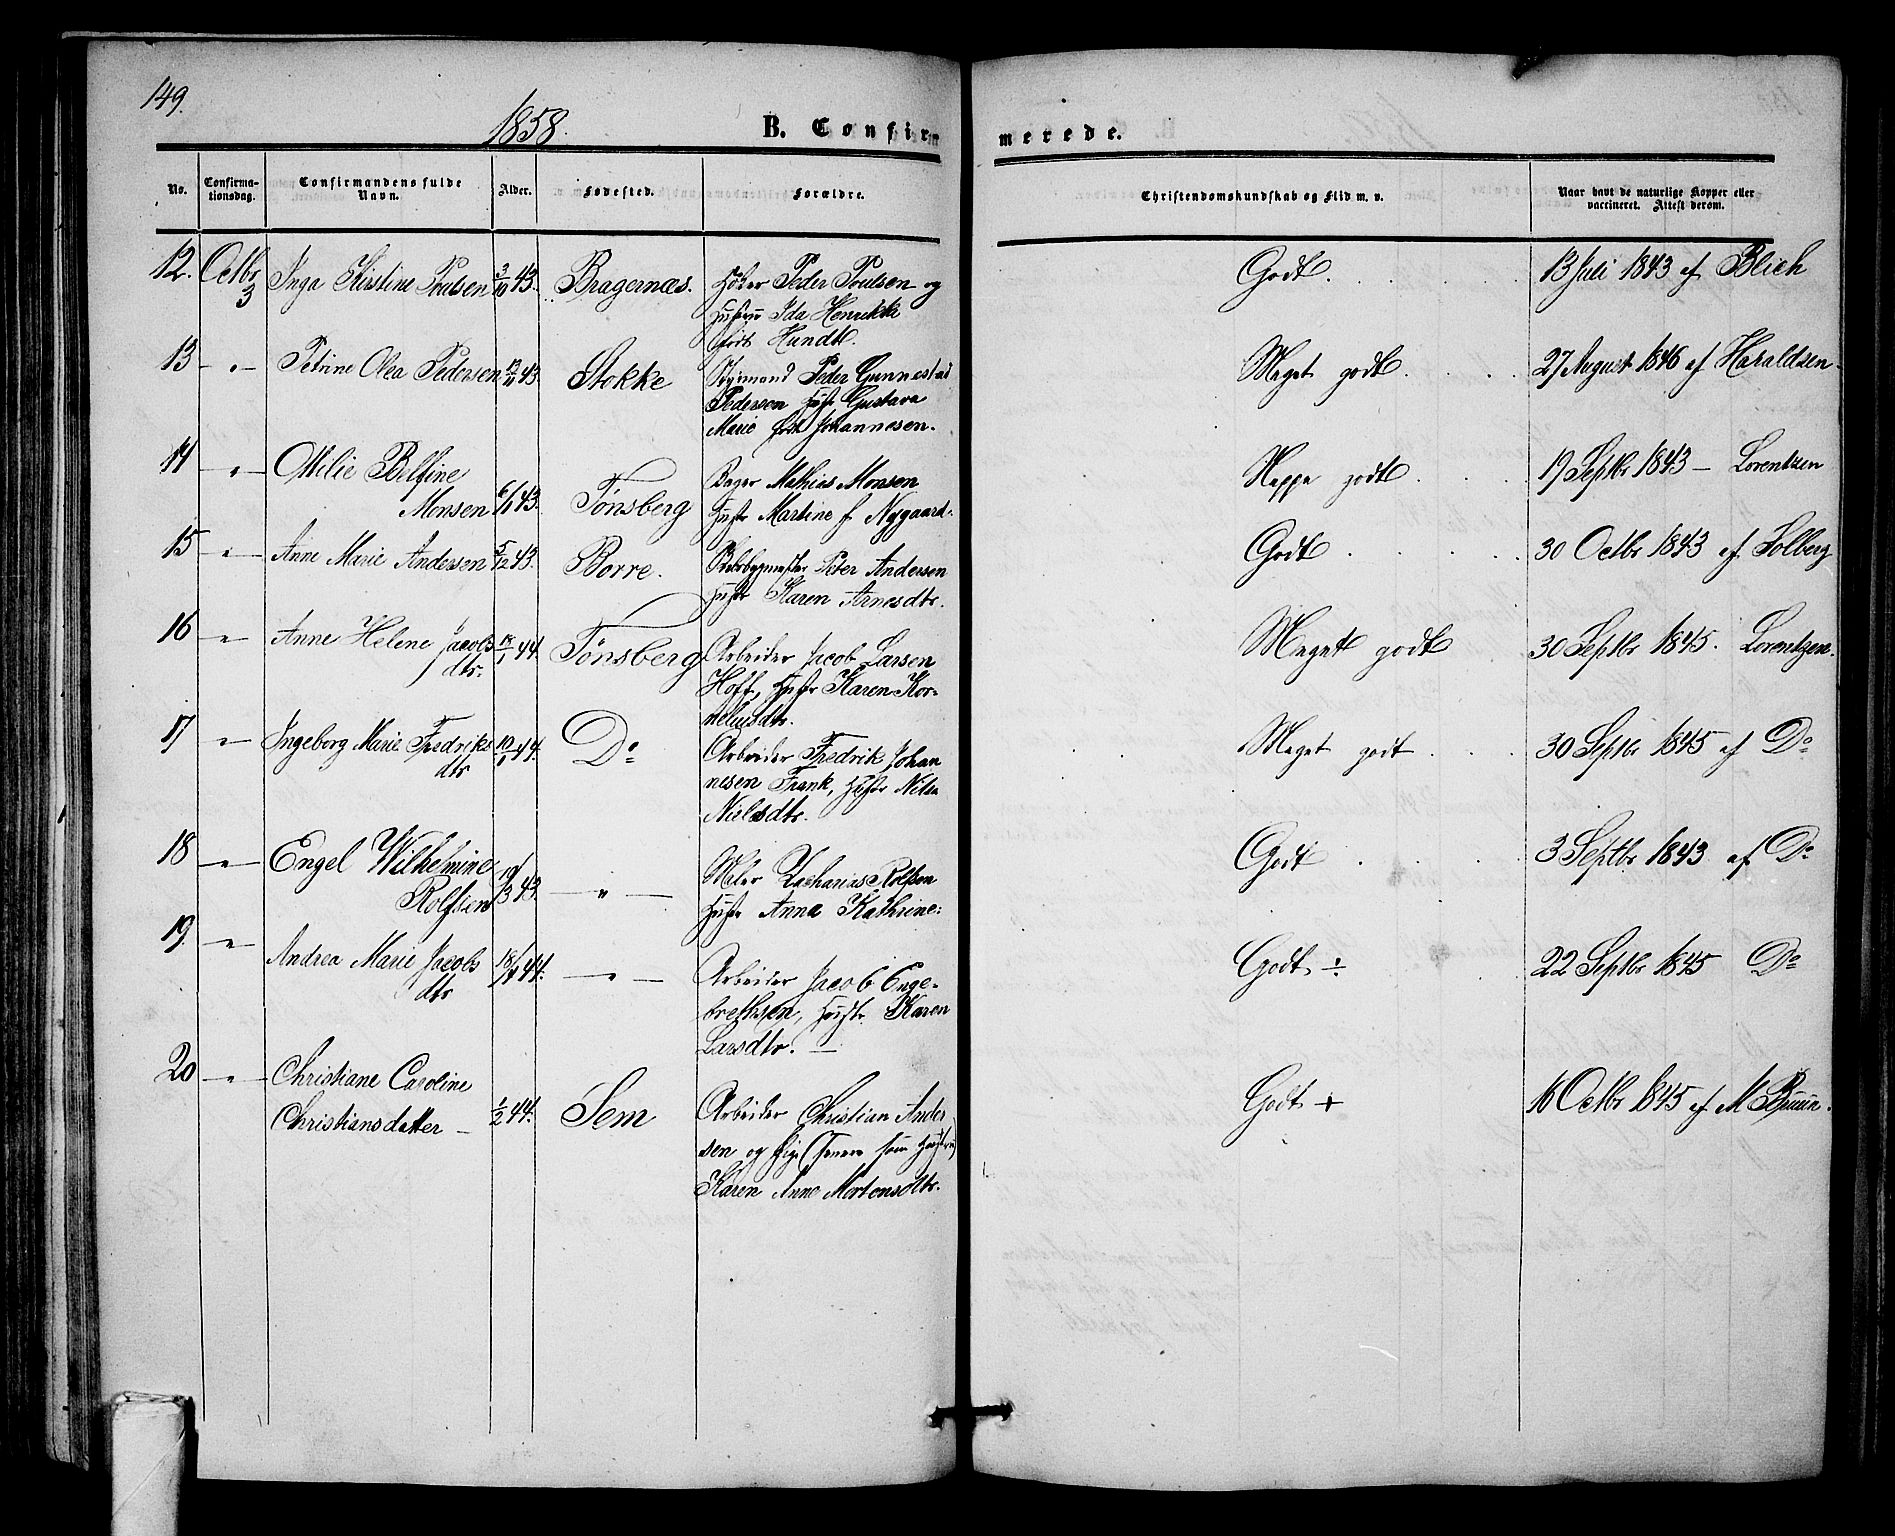 149.
1858.
B. Confir
merede.
No.
Confirma-
tionsdag.
Confirmandens fulde
Navn.
Alder.
Fødested.
Forældre.
Christendomskundskab og Flid m. v.
Naar havt de naturlige Kopper eller
vaccineret. Attest derom.
12. Octbr 3 Inga Kirstine Poulsen 3/10 43. Bragernæs. Peder Poulsen og
Hustru Ida Henrikke
født Hundt.
Godt. 13 Juli 1843 af Blich
13 — " — Petrine Olea Pedersen 12/11 43. Stokke Styrmand Peder Gunnestad
Pedersen Hustr Gustava
Marie født Johannesen.
Meget godt. 27 August 1846 af Haraldsen.
14 — " — Otilie Belfine
Monsen 6/1 43. Tønsberg Bager Mathias Monsen
Hustr Martine f. Nygaard.
Neppe godt. 19 Septbr 1843 — Lorentzen
15 — " — Anne Marie Andersen 5/12 43. Borre. Peter Andersen
Hustr Karen Arnesdtr.
Godt. 30 Octbr 1843 af Solberg
16 — " — Anne Helene Jacobs
dtr. 18/1 44. Tønsberg Arbeider Jacob Larsen
Hoff, Hustr Karen Kor-
neliusdtr.
Meget godt 30 Septbr 1845. Lorentzen.
17 — " — Ingeborg Marie Fredriks
dtr 10/1 44. Do Arbeider Fredrik Johan
nesen Frank, Hustr
Nielsdtr.
Meget godt 30 Septbr 1845 af Do
18 — " — Engel Wilhelmine
Rolfsen 19/3 43. — " — Maler Zacharias Rolfsen
Hustr Anna Kathrine:
Godt 3 Septbr 1843 af Do
19. — " — Andrea Marie Jacobs
dtr 44. — " — Arbeider Jacob Enge-
brethsen, Hustr. Karen
Larsdtr. —
Godt ÷ 22 Septbr 1845 Do
20 — " — Christiane Caroline
Christiansdatter — 1/2 44. Sem Arbeider Christian Ander
sen og Pige (senere som Hustru)
Karen Anne Mortensdtr.
Godt + 16 Octbr 1845 af M Bruun.